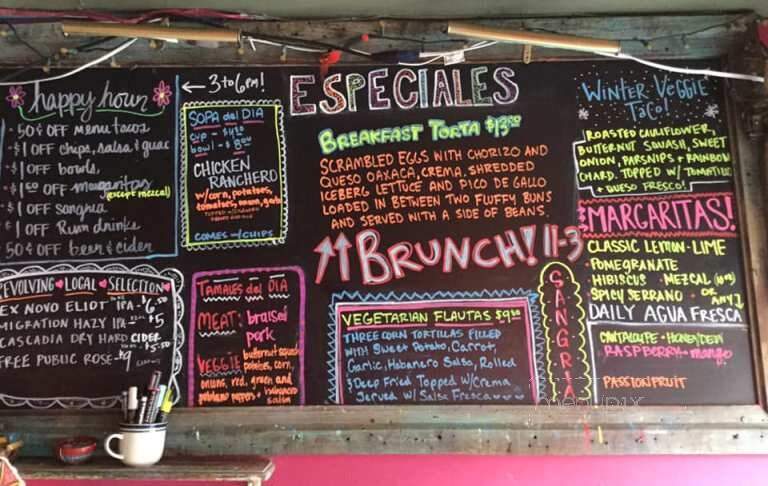 happy hour
- 50¢ OFF Menu tacos
- $1 OFF chips, salsa & guac
- $1 OFF bowls,
- $1.50 OFF margaritas
(except mezcal)
- $1 OFF sangria
- $1 OFF Rum drinks
50¢ OFF beer & cider
← 3 to 6pm!
SOPA del DIA
bowl - $
CHICKEN
RANCHERO
w/corn, potatoes,
tomatoes,
COMES w/CHIPS
ESPECIALES
BREAKFAST TORTA
SCRAMBLED EGGS WITH CHORIZO AND
QUESO OAXACA, CREMA, SHREDDED
ICEBERG LETTUCE AND PICO DE GALLO
LOADED IN BETWEEN TWO FLUFFY BUNS
AND SERVED WITH A SIDE OF BEANS.
BRUNCH! 11-3
WINTER VEGGIE
TACO!
ROASTED CAULIFLOWER,
BUTTERNUT SQUASH, SWEET
ONION, PARSNIPS + RAINBOW
CHARD. TOPPED W/ TOMATILLO
+ QUESO FRESCO!
MARGARITAS!
CLASSIC LEMON-LIME
POMEGRANATE
HIBISCUS · MEZCAL
SPICY SERRANO
DAILY AGUA FRESCA
CANTALOUPE · HONEYDEW
RASPBERRY + mango
PASSIONFRUIT
SANGRIA
REVOLVING LOCAL SELECTION
EX NOVO ELIOT IPA - 6.50
MIGRATION HAZY IPA - $5
CASCADIA DRY HARD CIDER
FREE PUBLIC ROSE - $9
TAMALES del DIA
MEAT: braised
pork
VEGGIE: butternut squash
potatoes, corn,
onions, red, green, and
poblano peppers + habanero
salsa
VEGETARIAN FLAUTAS
THREE CORN TORTILLAS FILLED
WITH Sweet Potato, Carrot,
Garlic, Habanero Salsa, Rolled
& Deep Fried Topped W/Crema
Served W/ Salsa Fresca
menupix